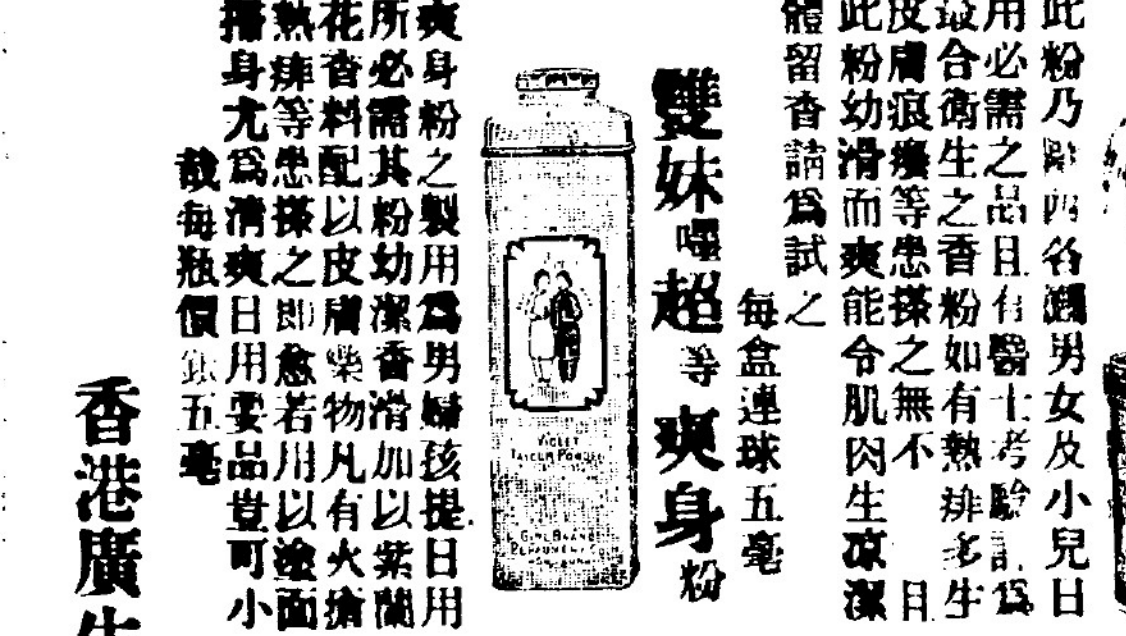 此粉乃歐西各國男女及小兒日
用必需之品且有醫士考驗認為
最合衛生之香粉如有熱痱多生
皮膚痕癢等患搽之無不 日
此粉幼滑而爽能令肌肉生凉潔
體留香請爲試之
每盒連球五毫
雙妹嚜超等爽身粉
VIOLET
TALCUM POWDER
GIRL BRAND
爽身粉之製用爲男婦孩提日用
所必需其粉幼潔香滑加以紫蘭
花香料配以皮膚藥物凡有火瘡
熱痱等患搽之即愈若用以塗面
身尤爲清爽日用要品豈可小
哉每瓶價銀五毫
香港廣生